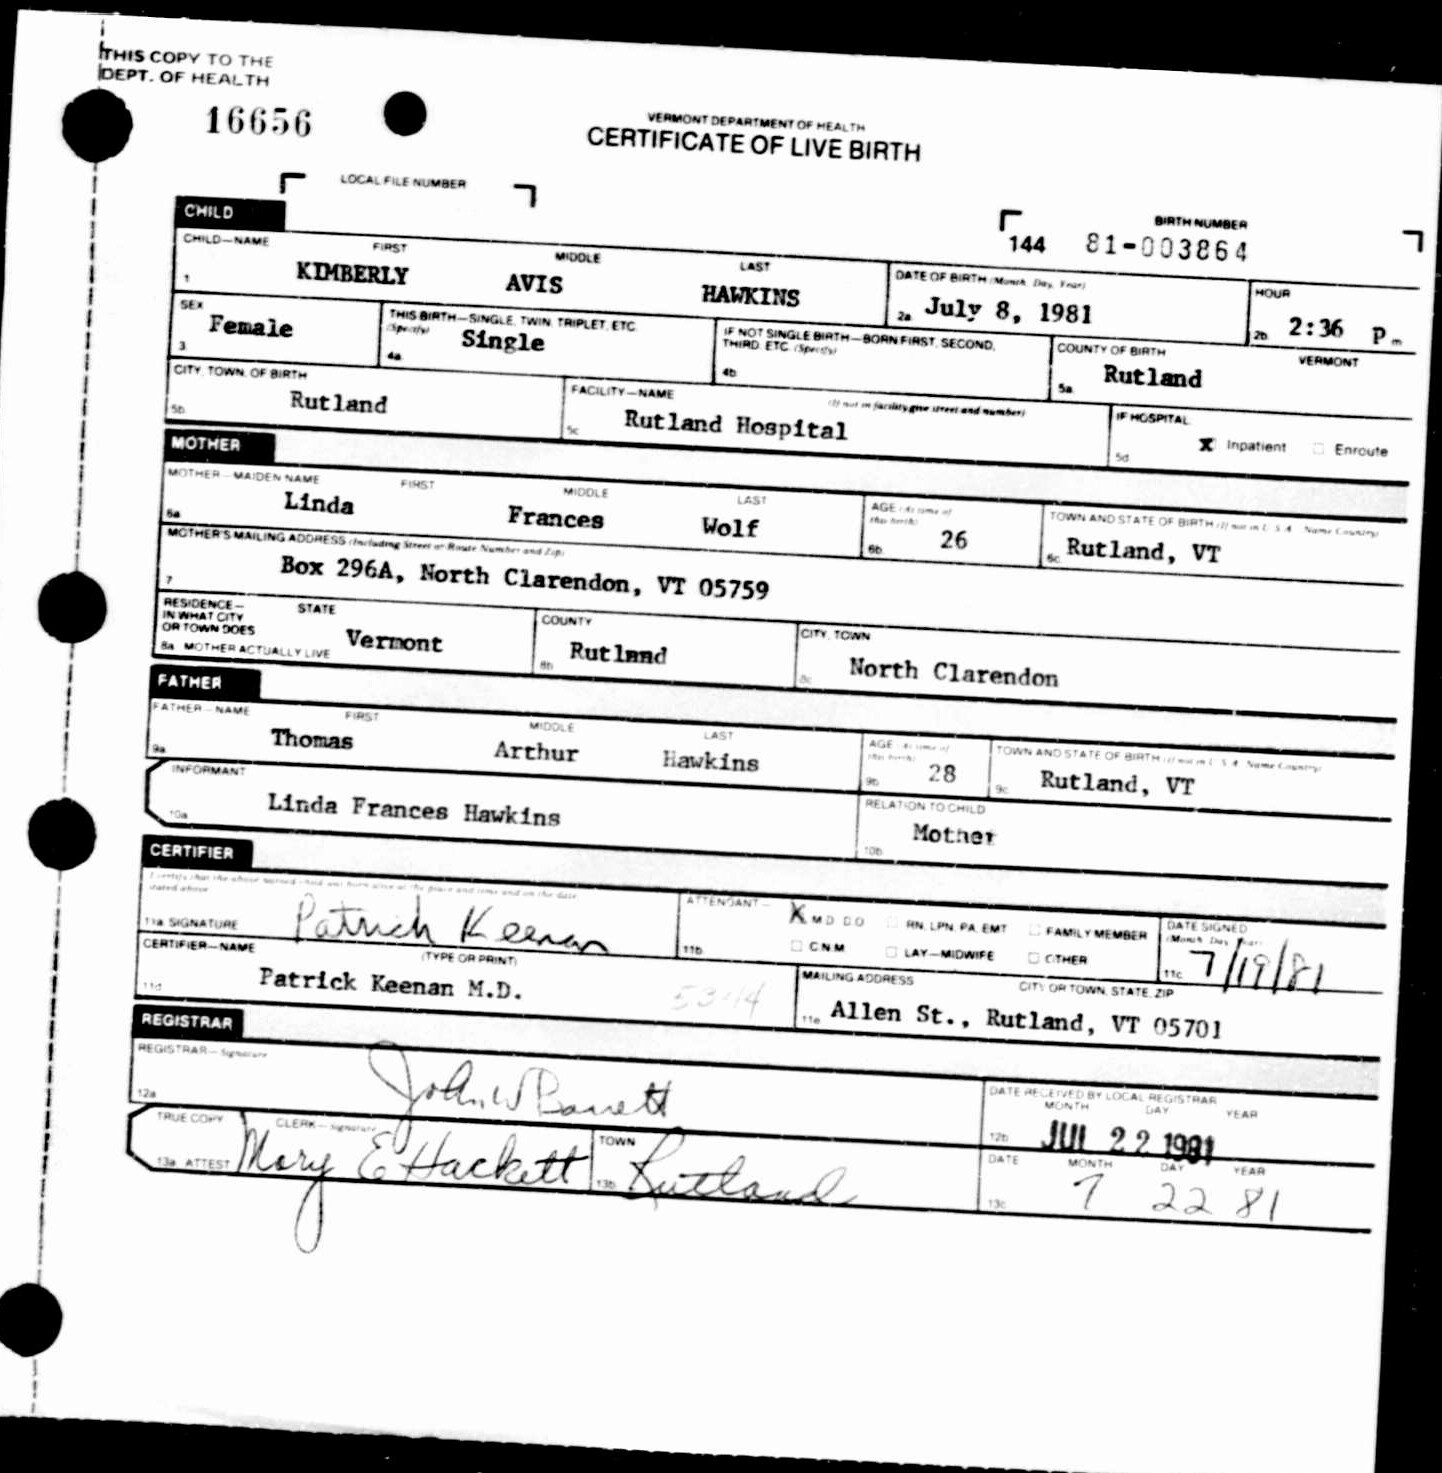 THIS COPY TO THE
DEPT. OF HEALTH
16656
VERMONT DEPARTMENT OF HEALTH
CERTIFICATE OF LIVE BIRTH
LOCAL FILE NUMBER
BIRTH NUMBER
144 81-003864
CHILD
CHILD—NAME FIRST MIDDLE LAST
1 KIMBERLY AVIS HAWKINS
DATE OF BIRTH (Month, Day, Year)
2a July 8, 1981
HOUR
2b 2:36 P m
SEX
3 Female
THIS BIRTH—SINGLE, TWIN, TRIPLET, ETC.
(Specify)
4a Single
IF NOT SINGLE BIRTH—BORN FIRST, SECOND,
THIRD, ETC. (Specify)
4b
COUNTY OF BIRTH VERMONT
5a Rutland
CITY, TOWN, OF BIRTH
5b Rutland
FACILITY—NAME (If not in facility give street and number)
5c Rutland Hospital
IF HOSPITAL
5d X Inpatient Enroute
MOTHER
MOTHER—MAIDEN NAME FIRST MIDDLE LAST
6a Linda Frances Wolf
AGE (At time of
this birth)
6b 26
TOWN AND STATE OF BIRTH (If not in U.S.A. Name Country)
6c Rutland, VT
MOTHER'S MAILING ADDRESS (Including Street or Route Number and Zip)
7 Box 296A, North Clarendon, VT 05759
RESIDENCE—
IN WHAT CITY
OR TOWN DOES
8a MOTHER ACTUALLY LIVE
STATE
Vermont
COUNTY
8b Rutland
CITY, TOWN
8c North Clarendon
FATHER
FATHER—NAME FIRST MIDDLE LAST
9a Thomas Arthur Hawkins
AGE (At time of
this birth)
9b 28
TOWN AND STATE OF BIRTH (If not in U.S.A. Name Country)
9c Rutland, VT
INFORMANT
10a Linda Frances Hawkins
RELATION TO CHILD
10b Mother
CERTIFIER
I certify that the above named child was born alive at the place and time and on the date
stated above
11a SIGNATURE Patrick Keenan
ATTENDANT—
11b X M.D. D.O. RN, LPN, PA, EMT FAMILY MEMBER
C.N.M. LAY—MIDWIFE OTHER
DATE SIGNED
(Month, Day, Year)
11c 7/19/81
CERTIFIER—NAME (TYPE OR PRINT)
11d Patrick Keenan M.D.
MAILING ADDRESS CITY OR TOWN, STATE, ZIP
11e Allen St., Rutland, VT 05701
REGISTRAR
REGISTRAR—Signature
12a John W Barrett
DATE RECEIVED BY LOCAL REGISTRAR
MONTH DAY YEAR
12b JUL 22 1981
TRUE COPY
13a ATTEST
CLERK—Signature
Mary E Hackett
TOWN
13b Rutland
DATE MONTH DAY YEAR
13c 7 22 81